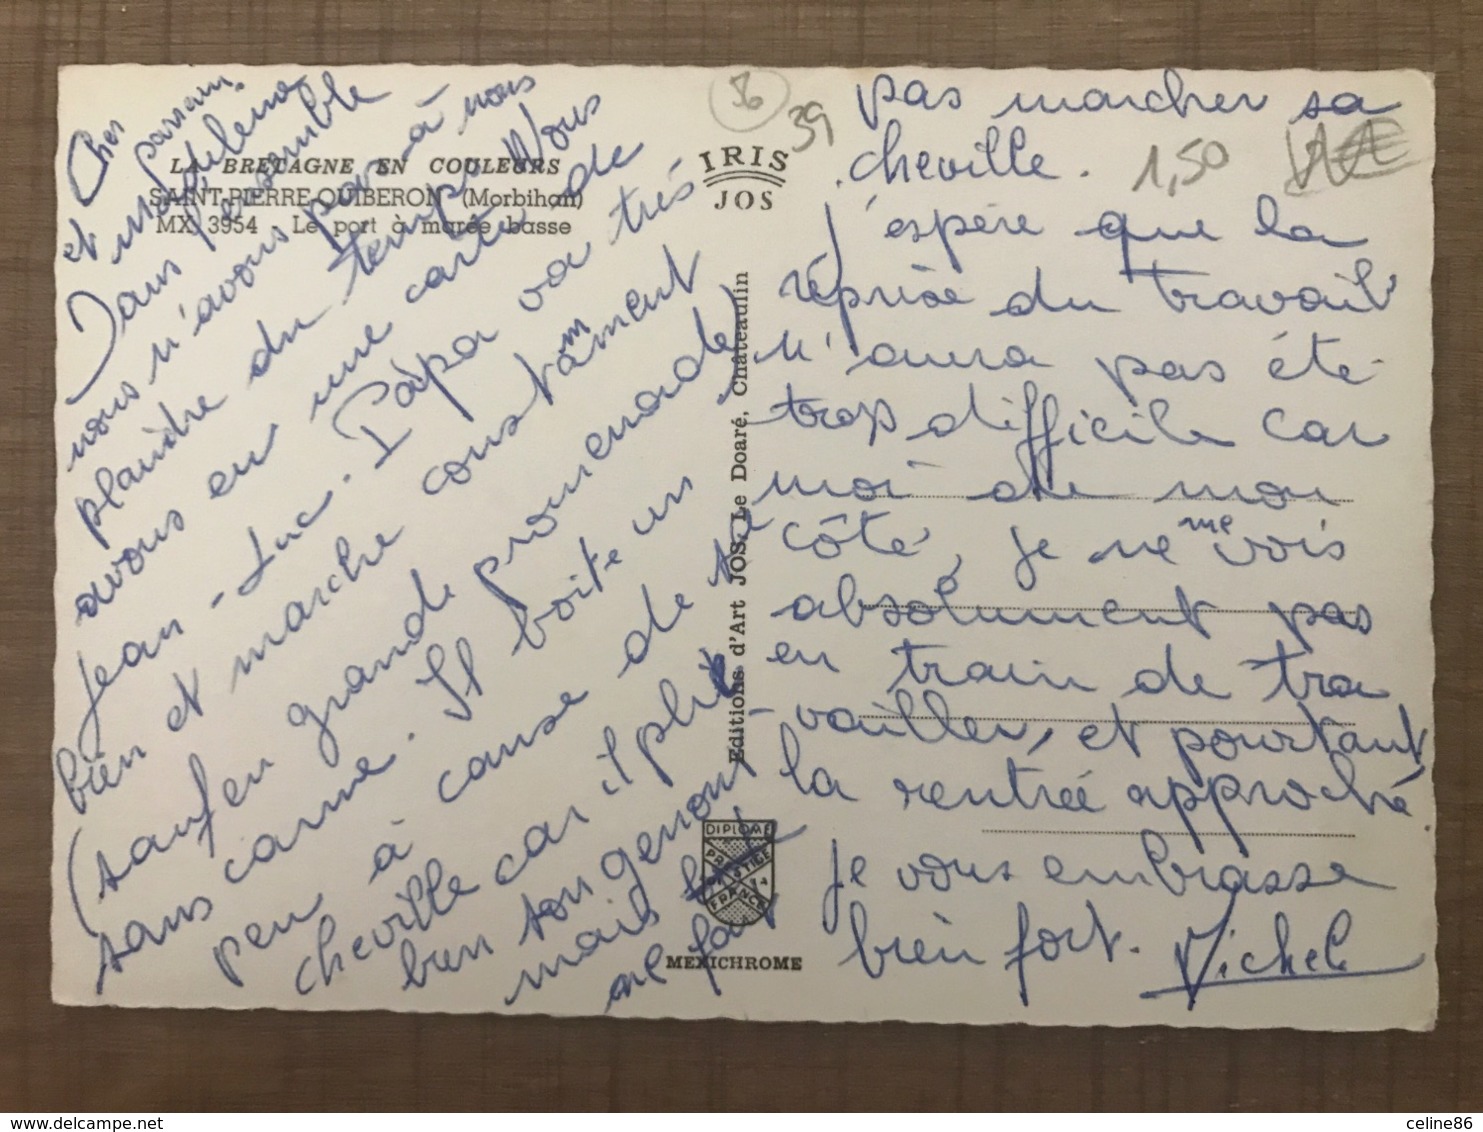 LA BRETAGNE EN COULEURS
SAINT-PIERRE-QUIBERON (Morbihan)
MX 3954 Le port à marée basse
IRIS
JOS
56
39
1,50
Editions d'Art JOS Le Doaré, Châteaulin
DIPLOME
PRESTIGE
FRANCE
MEXICHROME
Chers parrain
et madeleine
Dans l'ensemble
nous n'avons pas à nous
plaindre du temps. Nous
avons eu une carte de
Jean-Luc. Papa va très
bien et marche constamment
(sauf en grande promenade)
sans canne. Il boite un
peu à cause de sa
cheville car il plie
bien son genou
mais
ne fait
pas marcher sa
cheville.
J'espère que la
réprise du travail
n'aura pas été
trop difficile car
moi de mon
côté, je ne me vois
absolument pas
en train de tra
-vailler, et pourtant
la rentrée approche
Je vous embrasse
bien fort. Michel
celine86